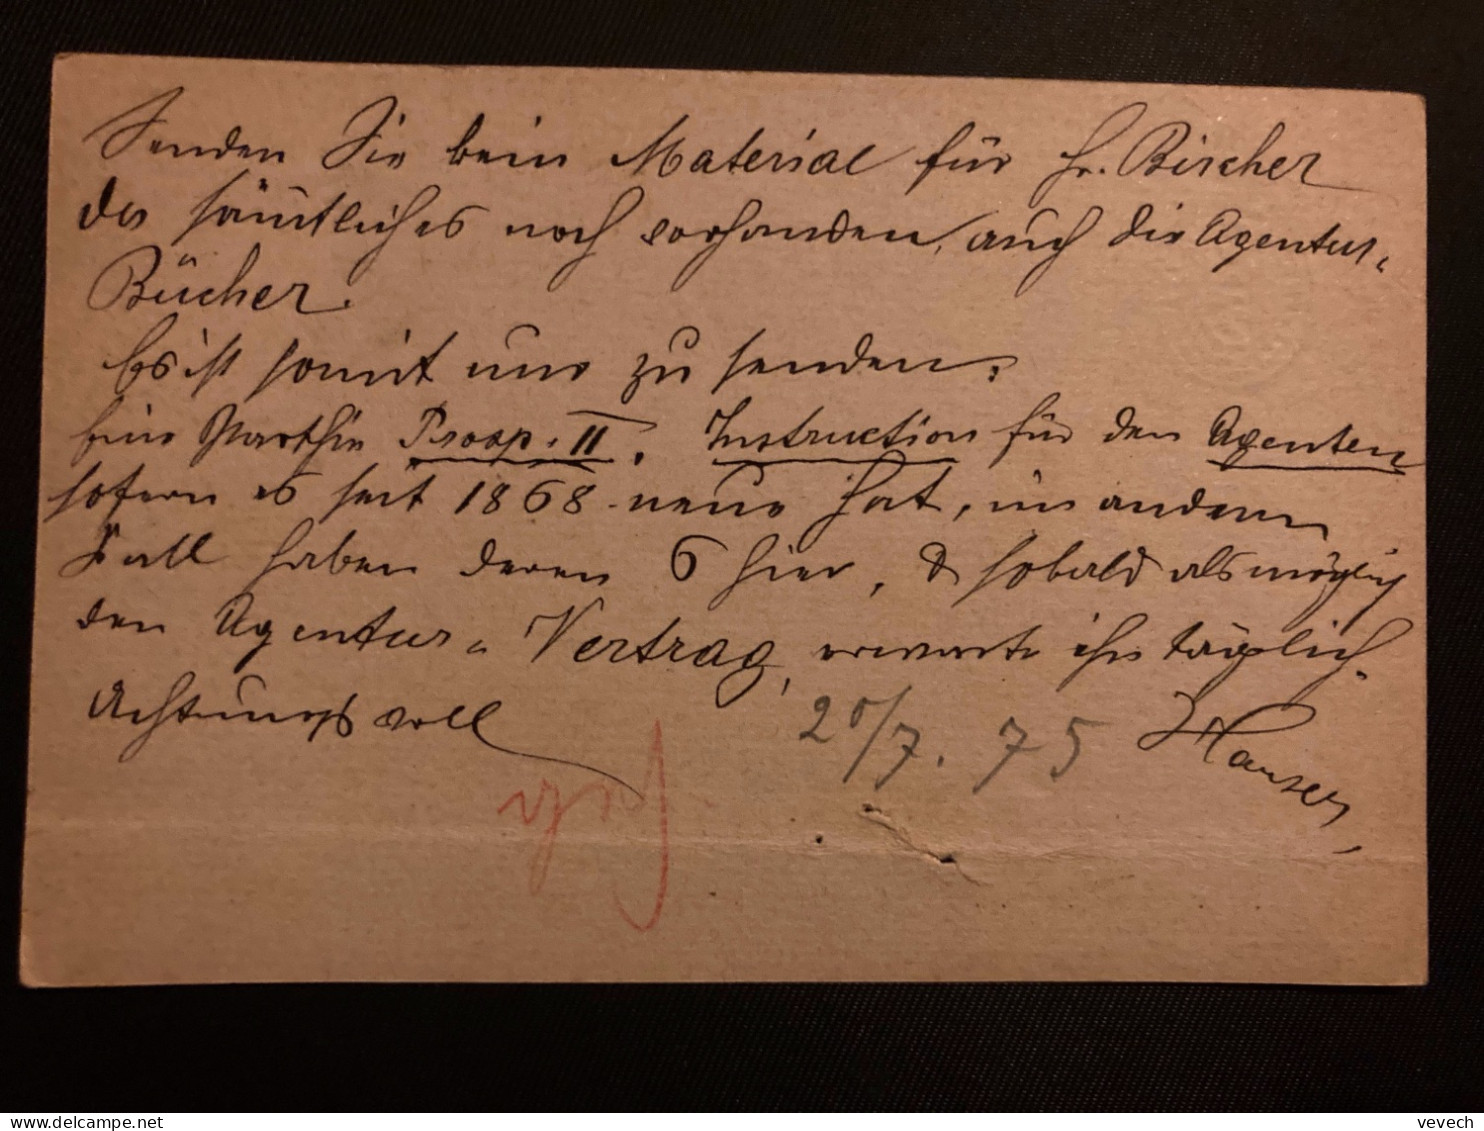 Senden Sie kein Material für Hr. Bircher
da sämtliches noch vorhanden, auch die Agentur-
Bücher.
Es ist somit nur zu senden:
Eine Parthie Prosp. II, Instruction für den Agenten
sofern es seit 1868 neue hat, im andern
Fall haben deren 6 hier, & sobald als möglich
den Agentur-Vertrag, erwarte ihn täglich.
Achtungsvoll
20/7. 75
Hauser
vevech